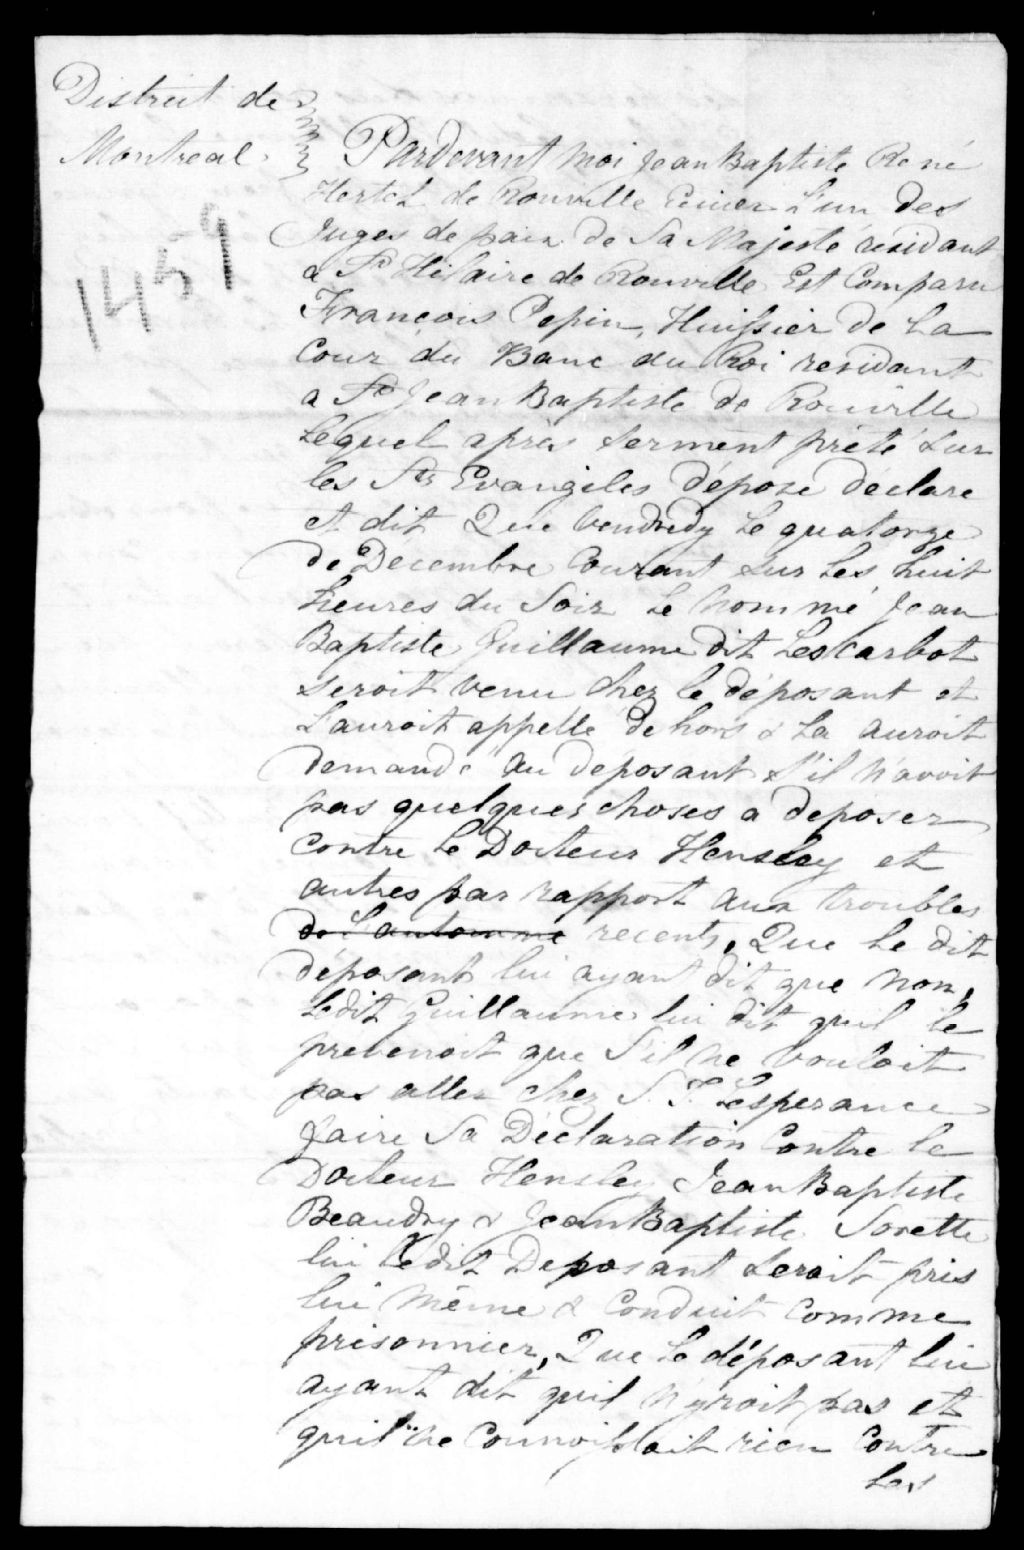 District de
Montreal.
1459
Pardevant moi Jean Baptiste René
Hertel de Rouville Ecuier L'un des
Juges de paix de Sa Majesté résidant
à St Hilaire de Rouville Est Comparu
François Pepin, Huissier de La
Cour du Banc du Roi residant
a St Jean Baptiste de Rouville
Lequel après serment prêté sur
les Sts Evangiles dépose déclare
et dit Que Vendredy le quatorze
de Decembre Courant sur les huit
heures du Soir le nommé Jean
Baptiste Guillaume dit Lescarbot
seroit venu chez le déposant et
L'auroit appellé dehors & La auroit
demandé au déposant s'il n'avoit
pas quelques choses a deposer
contre le Docteur Hensley et
autres par rapport aux troubles
de L'automne recents. Que le dit
deposant lui ayant dit que non,
Ledit Guillaume lui dit qu'il le
prevenoit que s'il ne vouloit
pas aller chez Lesperance
faire Sa Déclaration Contre le
Docteur Hensley Jean Baptiste
Beaudry & Jean Baptiste Sorette
lui Ledit Deposant seroit pris
lui même & Conduit comme
prisonnier, Que le déposant lui
ayant dit quil n'yroit pas et
quil ne connoissoit rien Contre
Les